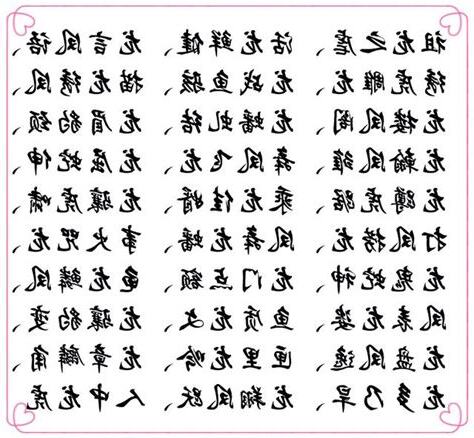 祖龙之虐、活龙鲜健、龙言凤语、
绣虎雕龙、龙战鱼骇、描龙绣凤、
龙楼凤阁、龙蟠虬结、龙眉豹颈、
龙翰凤雏、舞凤飞龙、龙屈蛇伸、
龙蹲虎踞、乘龙佳婿、龙骧虎啸、
打凤捞龙、凤舞龙蟠、事火咒龙、
龙鬼蛇神、龙门点额、龟龙鳞凤、
凤表龙姿、鱼质龙文、龙骧豹变、
龙盘凤逸、匣里龙吟、龙章麟角、
龙多乃旱、龙翔凤跃、人中龙虎、